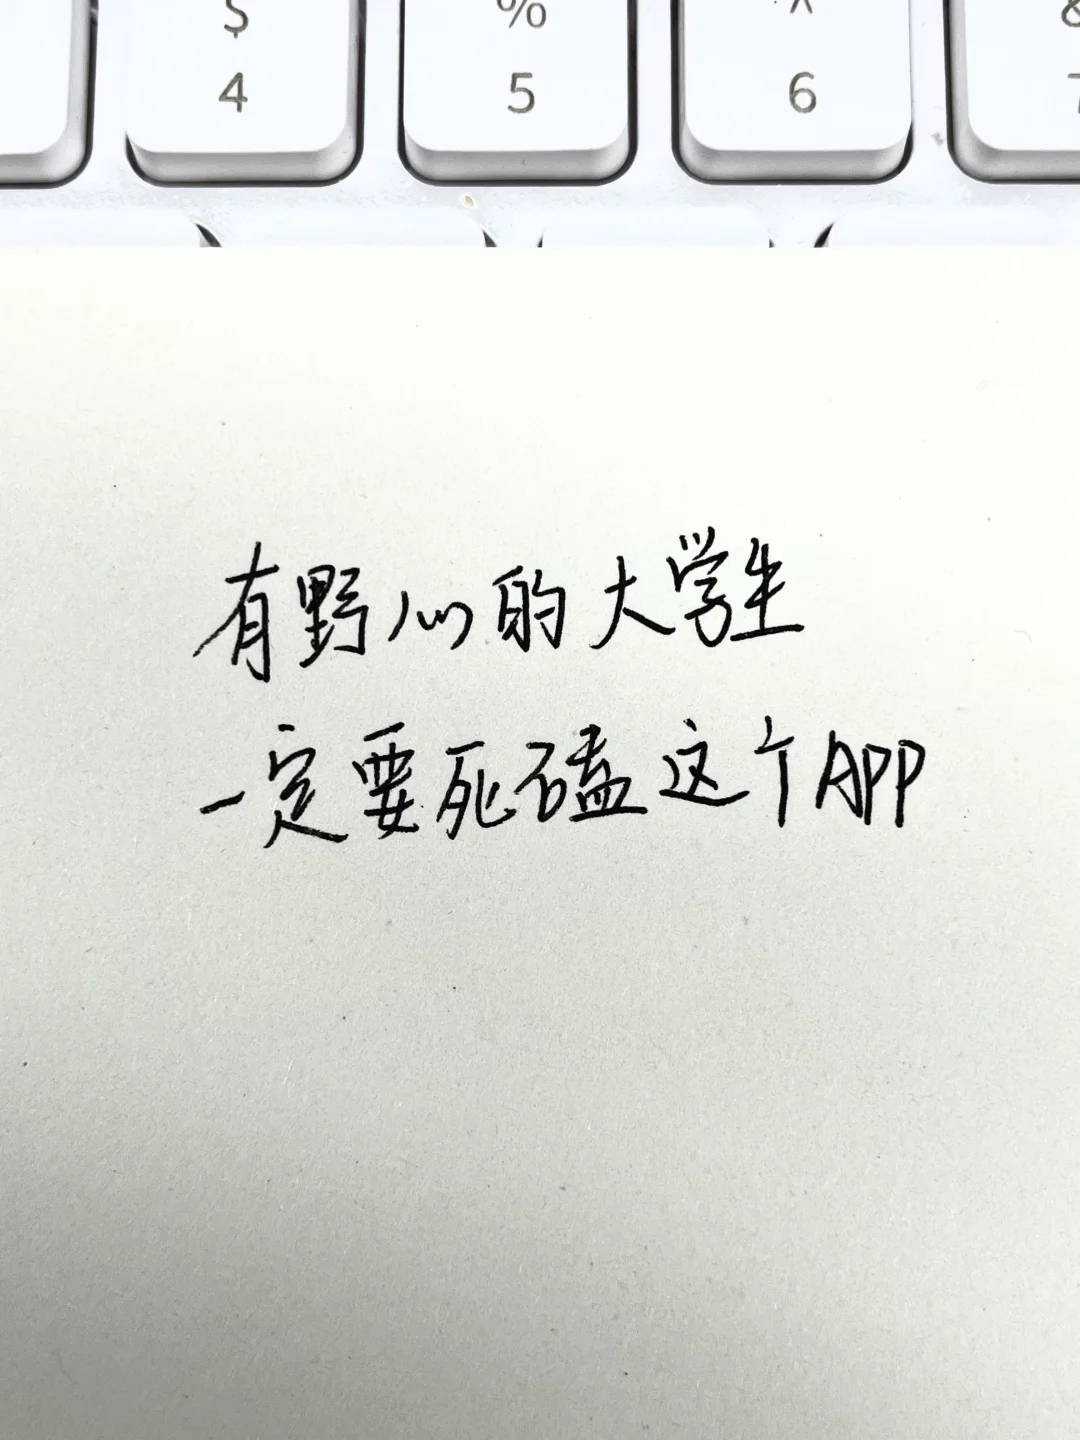 $ % ^ &
4 5 6 7
有野心的大学生
一定要死磕这个APP